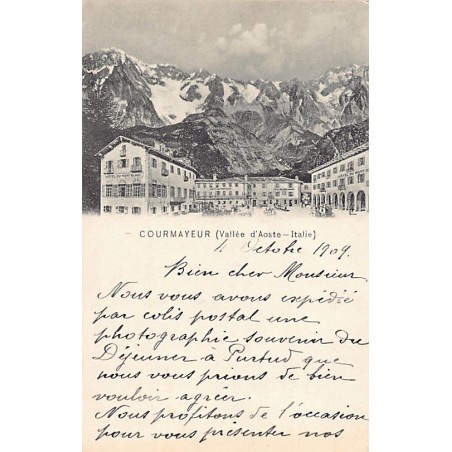 COURMAYEUR (Vallée d'Aoste - Italie)
1. Octobre 1909.
Bien cher Monsieur
Nous vous avons expédié
par colis postal une
photographie souvenir du
Déjeuner à Purtud que
nous vous prions de bien
vouloir agréer.
Nous profitons de l'occasion
pour vous présenter nos